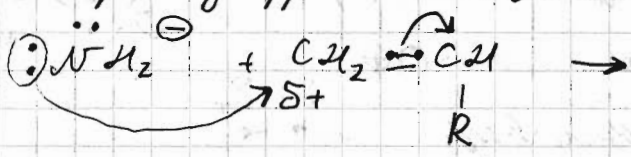 :NH₂ ⊖ + CH₂ = CH →
δ+
R